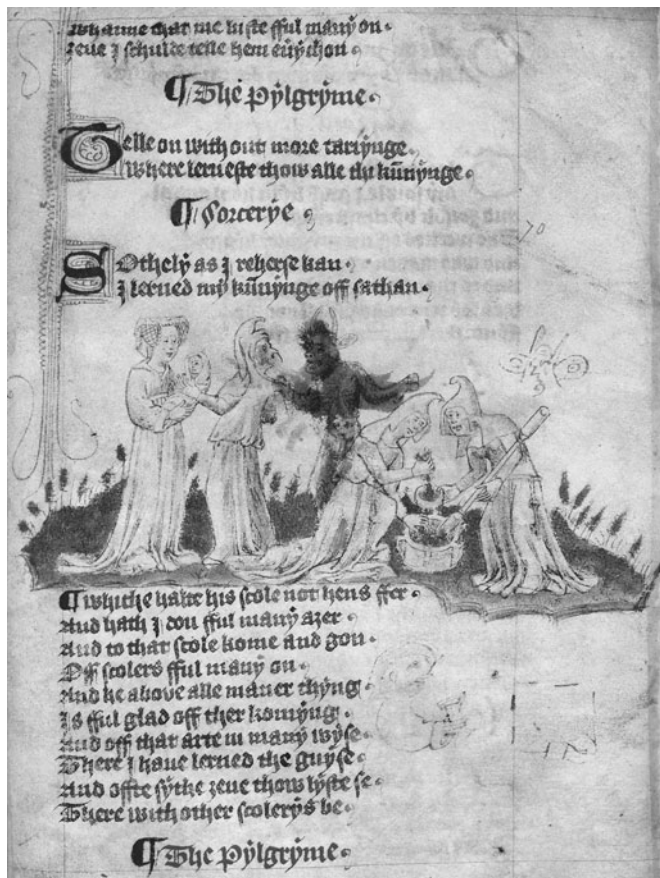 Whanne that me liste fful many on
zeue I schulde telle hem euychon
¶ The pylgryme
Telle on with out more taryinge
Where lerneste thow alle thy kunynge
¶ Sorcerye
Sothely as I reherse kan
I lerned my kunynge off sathan
70
¶ Whiche halte his scole not hens ffer
And hath I dou fful many azer
And to that scole kome and gon
Off scolers fful many on
And he above alle maner thyng
Is fful glad off ther komyng
And off that arte in many wyse
There I haue lerned the guyse
And offte sythe zeue thow lyste se
There with other scolerys be
¶ The pylgryme